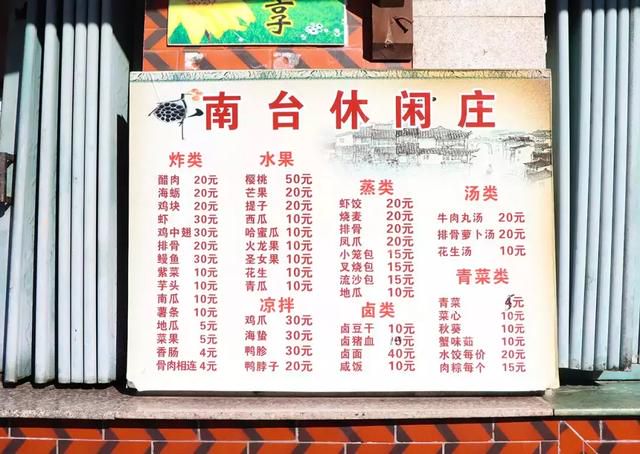 言子
南台休闲庄
炸类
醋肉 20元
海蛎 20元
鸡块 20元
虾 30元
鸡中翅 30元
排骨 20元
鳗鱼 30元
紫菜 10元
芋头 10元
南瓜 10元
薯条 10元
地瓜 5元
菜果 5元
香肠 4元
骨肉相连 4元
水果
樱桃 50元
芒果 20元
提子 20元
西瓜 10元
哈蜜瓜 10元
火龙果 10元
圣女果 10元
花生 10元
青瓜 10元
凉拌
鸡爪 30元
海蜇 30元
鸭胗 30元
鸭脖子 20元
蒸类
虾饺 20元
烧麦 20元
排骨 20元
凤爪 20元
小笼包 15元
叉烧包 15元
流沙包 15元
地瓜 10元
卤类
卤豆干 10元
卤猪血 元
卤面 40元
咸饭 10元
汤类
牛肉丸汤 20元
排骨萝卜汤 20元
花生汤 10元
青菜类
青菜 元
菜心 10元
秋葵 10元
蟹味菇 10元
水饺每价 20元
肉粽每个 15元